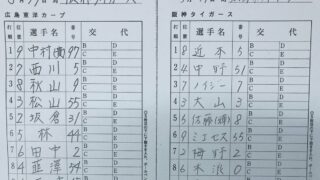 広島東洋カープ
打順 位置 選手名 交代
1 9 中村(貴) 97 B C D E
2 7 西川 5 B C D E
3 8 秋山 9 B C D E
4 3 松山 55 B C D E
5 2 坂倉 31 B C D E
6 5 林 44 B C D E
7 6 田中 2 B C D E
8 4 韮澤 54 B D
阪神タイガース
打順 位置 選手名 交代
1 8 近本 5 B C D E
2 4 中野 51 B C D E
3 7 ノイジー 7 B C D E
4 3 大山 3 B C D E
5 5 佐藤(輝) 8 B C D E
6 9 ミエセス 55 B C D E
7 2 梅野 2 B C D E
8 6 木浪 0 B D